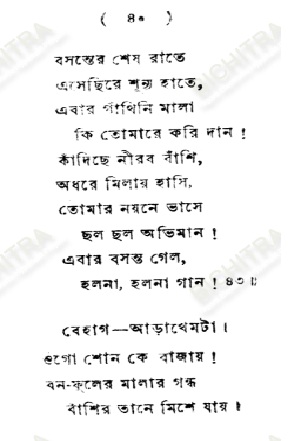 ( ৪০ )
বসন্তের শেষ রাতে
এসেছিরে শূন্য হাতে,
এবার গাঁথিনি মালা
কি তোমারে করি দান !
কাঁদিছে নীরব বাঁশি,
অধরে মিলায় হাসি,
তোমার নয়নে ভাসে
ছল ছল অভিমান !
এবার বসন্ত গেল,
হলনা, হলনা গান ! ৪৩ ॥
বেহাগ—আড়াখেমটা ।
ওগো শোন কে বাজায় !
বন-ফুলের মালার গন্ধ
বাঁশির তানে মিশে যায় ।